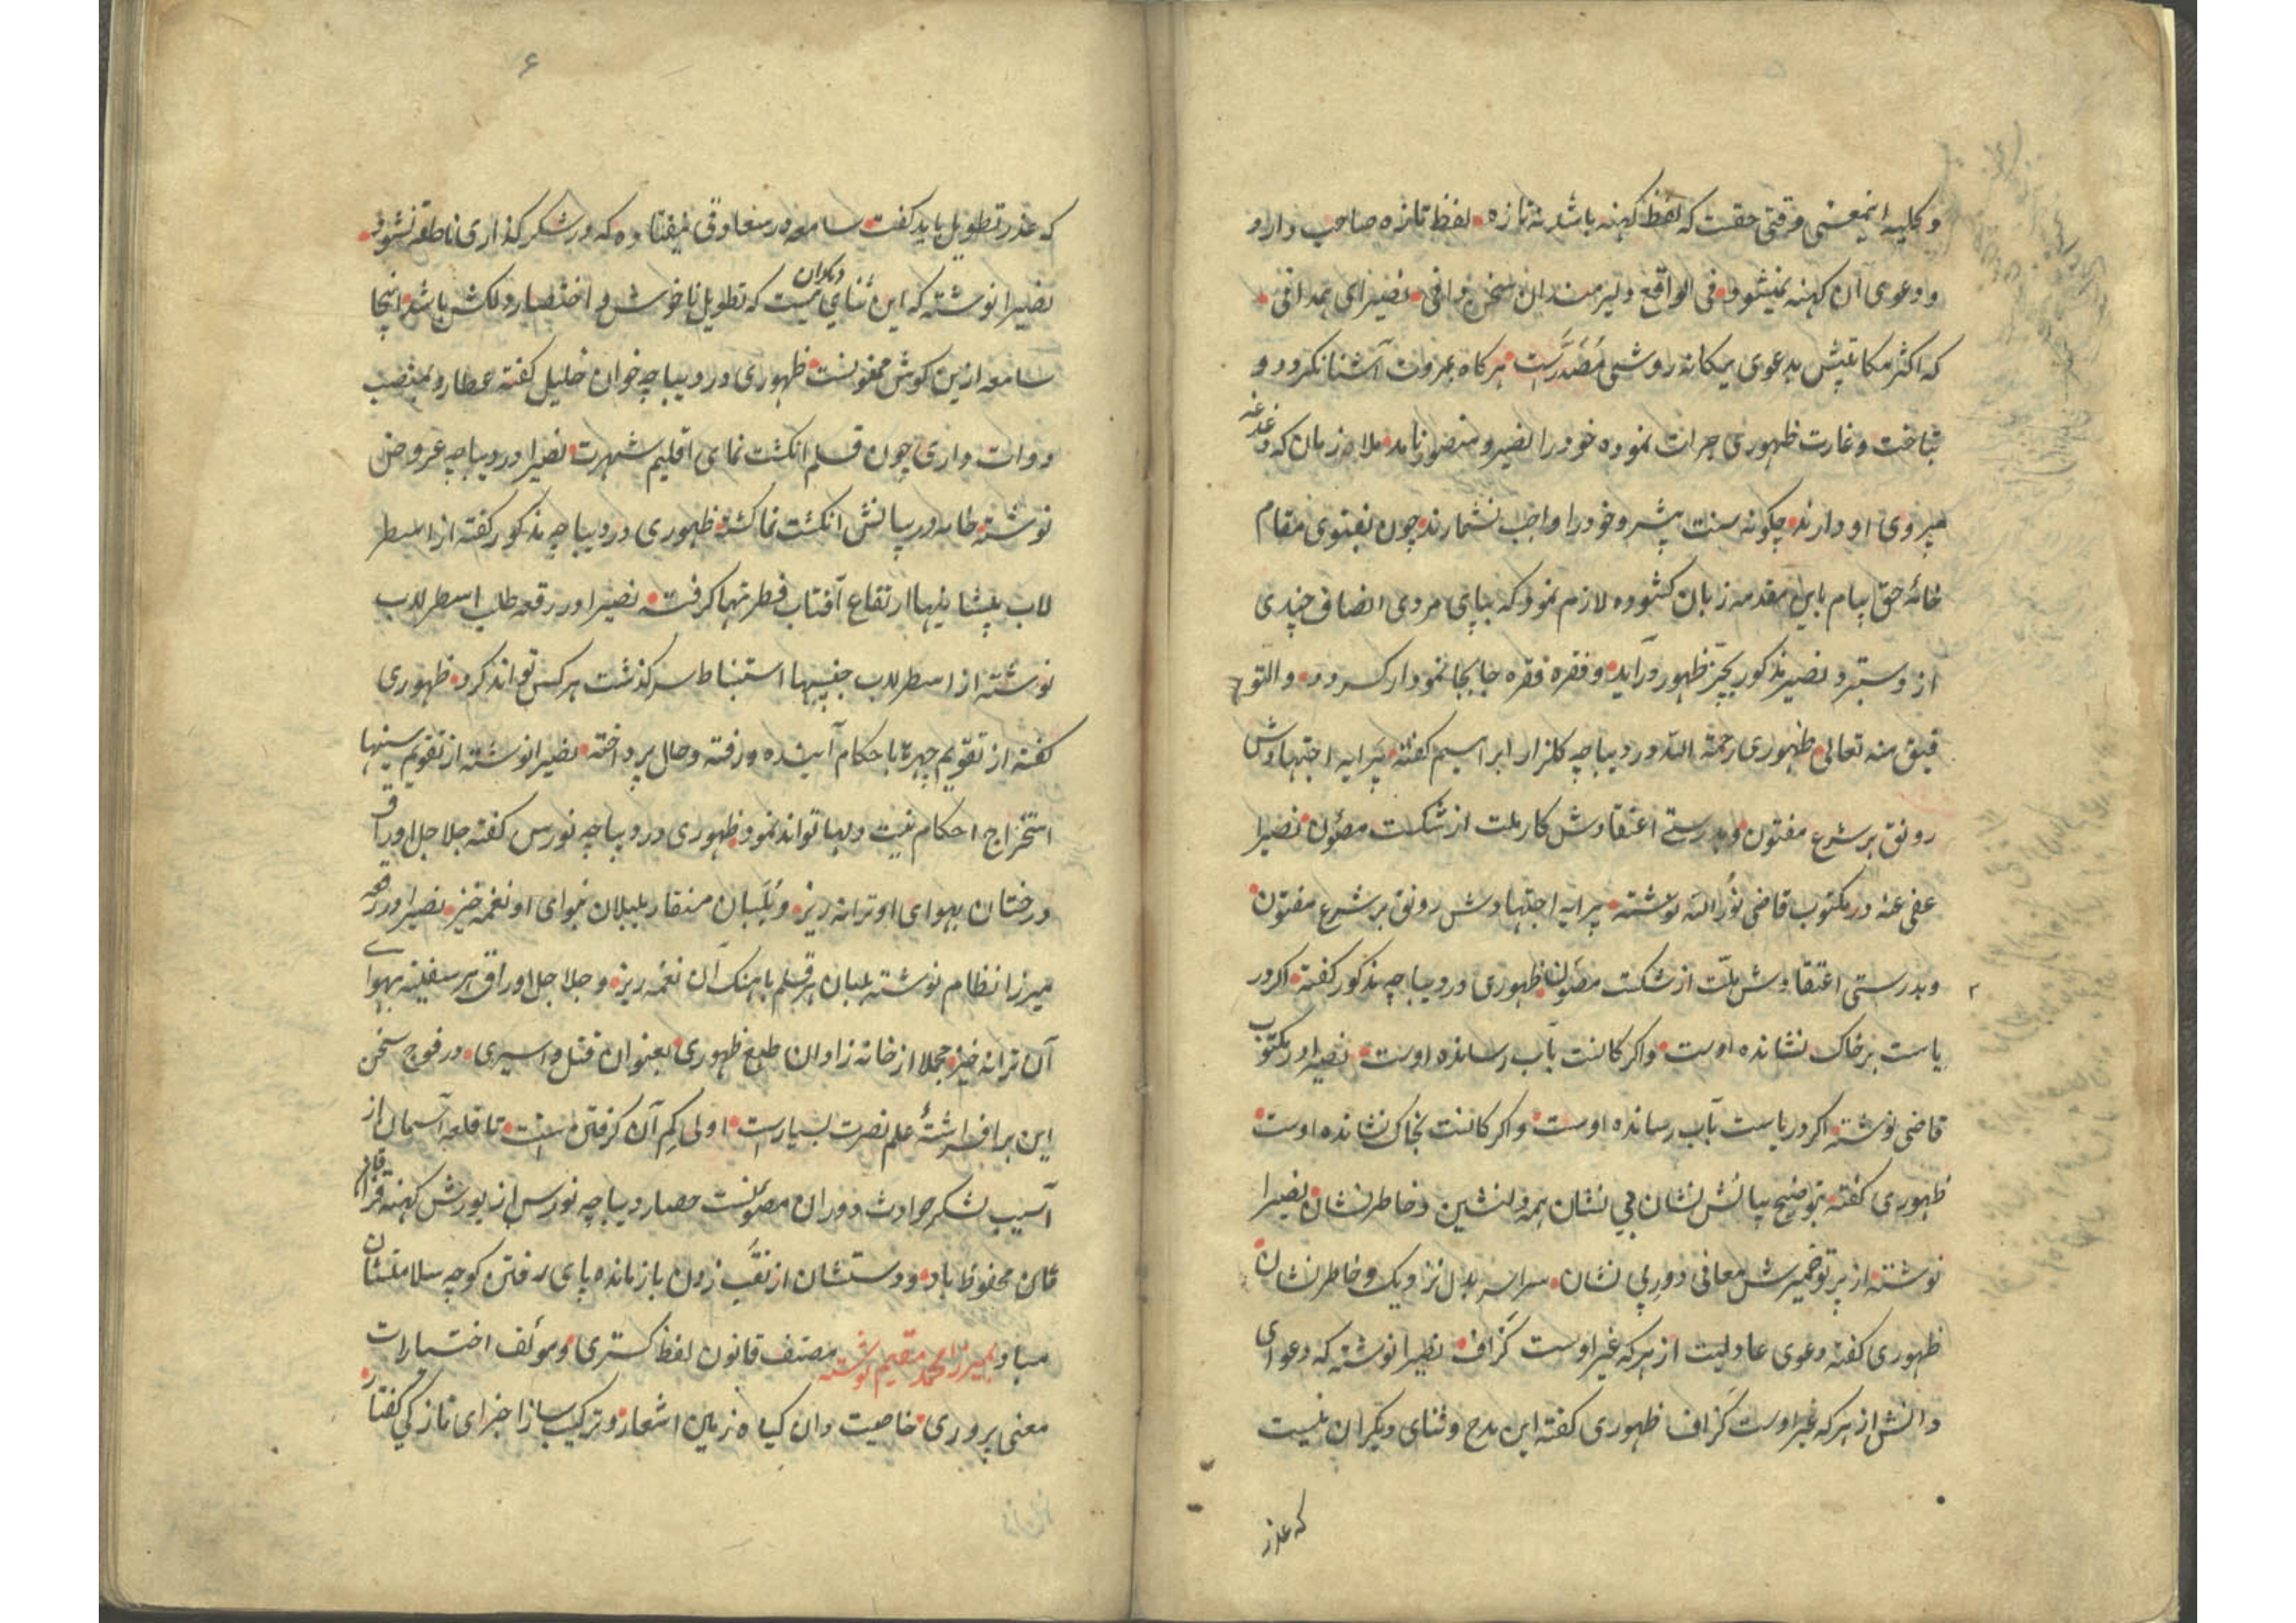 و کلیه اینمعنی وقتی حقست که لفظ کهنه باشد نه تازه لفظ تازه صاحب دارد
و دعوی آن کهنه نمیشود فی الواقع دلیر میدان سخن رانی نصیرای همدانی
که اکثر مکاتیبش بدعوی بیکانه روشی مُصَدَّرست هر کاه بمروت آشنا نکردد و
بتاخت و غارت ظهوری جرات نموده خود را نصیر و منصور نامد ملا زمان که دغدغه
پیروی او دارند چکونه سنت پیشرو خود را واجب نشمارند چون بفتوی مقام
خامهٔ حق پیام باین مقدمه زبان کشوده لازم نمود که بپای مردی انصاف چندی
از دستبرد نصیر مذکور بحیّز ظهور درآید و فقره فقره جابجا نمودار کردد والتو
فیق منه تعالی ظهوری رحمة الله در دیباچه کلزار ابراسیم کفته پیرایه اجتهادش
رونق بر شرع مفتون و بدرستی اعتقادش کار ملت از شکست مصئون نصیرا
عفی عنه در مکتوب قاضی نورالله نوشته پیرایه اجتهادش رونق بر شرع مفتون
و بدرستی اعتقادش ملّت از شکست مصئون ظهوری در دیباچه مذکور کفته اکر در
یاست بر خاک نشانده اوست و اکر کانست بآب رسانده اوست نصیرا در مکتوب
قاضی نوشته اکر دریاست بآب رسانده اوست و اکر کانست بخاک نشانده اوست
ظهوری کفته بتوضیح بیانش نشان بی نشان همه دلنشین و خاطر نشان نصیرا
نوشته از پرتو ضمیرش معانی دور پی نشان سراسر بدل نزدیک و خاطر نشان
ظهوری کفته دعوی عادلیت از هر که غیر اوست کزاف نصیرا نوشته که دعوای
دانش از هر که غیر اوست کزاف ظهوری کفته این مدح و ثنای دیکران نیست
که عذر
۶
که عذر تطویل باید کفت سامعه در سعادتی نیفتاده که در شکر کذاری ناطقه نشود
نصیرا نوشته که این ثنای دیکران نیست که تطویل ناخوش و اختصار دلکش باشد اینجا
سامعه ازین کوش ممنونست ظهوری در دیباچه خوان خلیل کفته عطارد بمنصب
دوات داری چون قلم انکشت نمای اقلیم شهرت نصیرا در دیباچه عروض
نوشته خامه در بیانش انکشت نما کشته ظهوری در دیباچه مذکور کفته از اسطر
لاب پیشانیها ارتفاع آفتاب فطرتهما کرفته نصیرا در رقعه طلب اسطرلاب
نوشته از اسطرلاب جبینها استنباط سرکذشت هر کس تواند کرد ظهوری
کفته از تقویم چهره با حکام آینده و رفته و حال پرداخته نصیرا نوشته از تقویم سینها
استخراج احکام نیت دلها تواند نمود ظهوری در دیباچه نورس کفته جلاجل اوراق
درختان بهوای او ترانه ریز و بلبان منقار بلبلان بنوای او نغمه خیز نصیرا در رقعه
میرزا نظام نوشته بلبان هر قلم باهنک آن نغمه ریز و جلاجل اوراق هر سفینه بهوای
آن ترانه خیز مجملا از خانه زادان طبع ظهوری بعنوان قتل و اسیری در فوج سخن
این برافراشتهٔ علم نصرت بسیارست اولی کم آن کرفتن است تا قلعه آسمان از
آسیب لشکر حوادث دوران مصئونست حصار دیباچه نورس از یورش کهنه قزاقان
محفوظ باد و دستشان از نقب زدن بازمانده پای رفتن کوچه سلامتشان
مباد بمیرزا محمد مقیم نوشته مصنف قانون لفظ کستری و مؤلف اختیارات
معنی پروری خاصیت دان کیاه زمین اشعار و ترکیب ساز اجزای تازکی کفتار